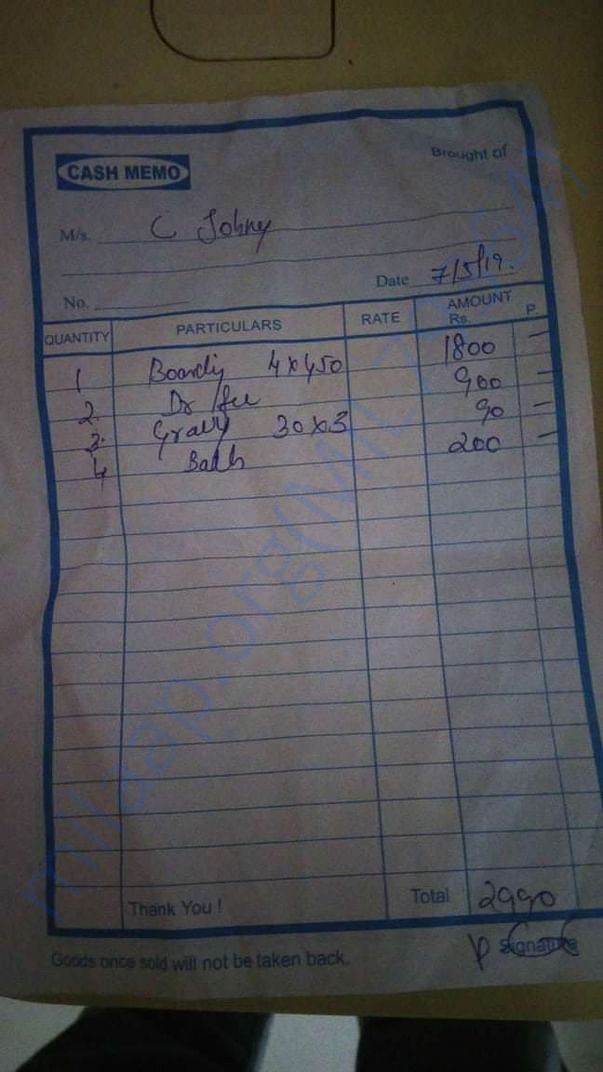 Brought of
CASH MEMO
M/s. C Johny
Date 7/5/19.
No.
QUANTITY PARTICULARS RATE AMOUNT Rs. P.
1 Boarding 4x450 1800 –
2. Dr fee 900 –
3. Gravy 30x3 90 –
4 Bath 200 –
Thank You ! Total 2990
Signature
Goods once sold will not be taken back.